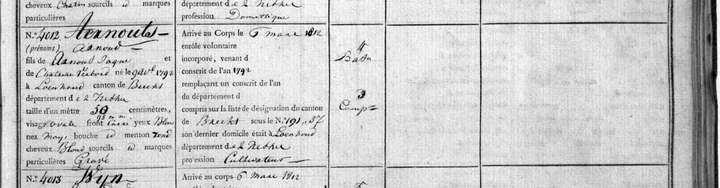 cheveux Chatin sourcils id marques
particulières
département d e l Nethe
profession Domestique
N.° 4012 Aernouts
(prénoms) Arnoud
fils de Arnoud Jaque et
de né le 9 1792
à Loenhoud canton de Brecht
département d e l Nethe
taille d'un mètre 59 centimètres,
visage ovale front yeux Bleu
nez moy. bouche id menton rond
cheveux Blond sourcils id marques
particulières Gravé
Arrivé au Corps le 6 Mars 1812
enrôle volontaire
incorporé, venant d
conscrit de l'an 1792
remplaçant un conscrit de l'an
du département d
compris sur la liste de désignation du canton
de Brecht sous le N.° 191.
son dernier domicile était Loenhoud
département d e l Nethe
profession Cultivateur
4
Batn
3
Comp
N.° 4013 Wyn
Arrivé au corps 6 Mars 1812